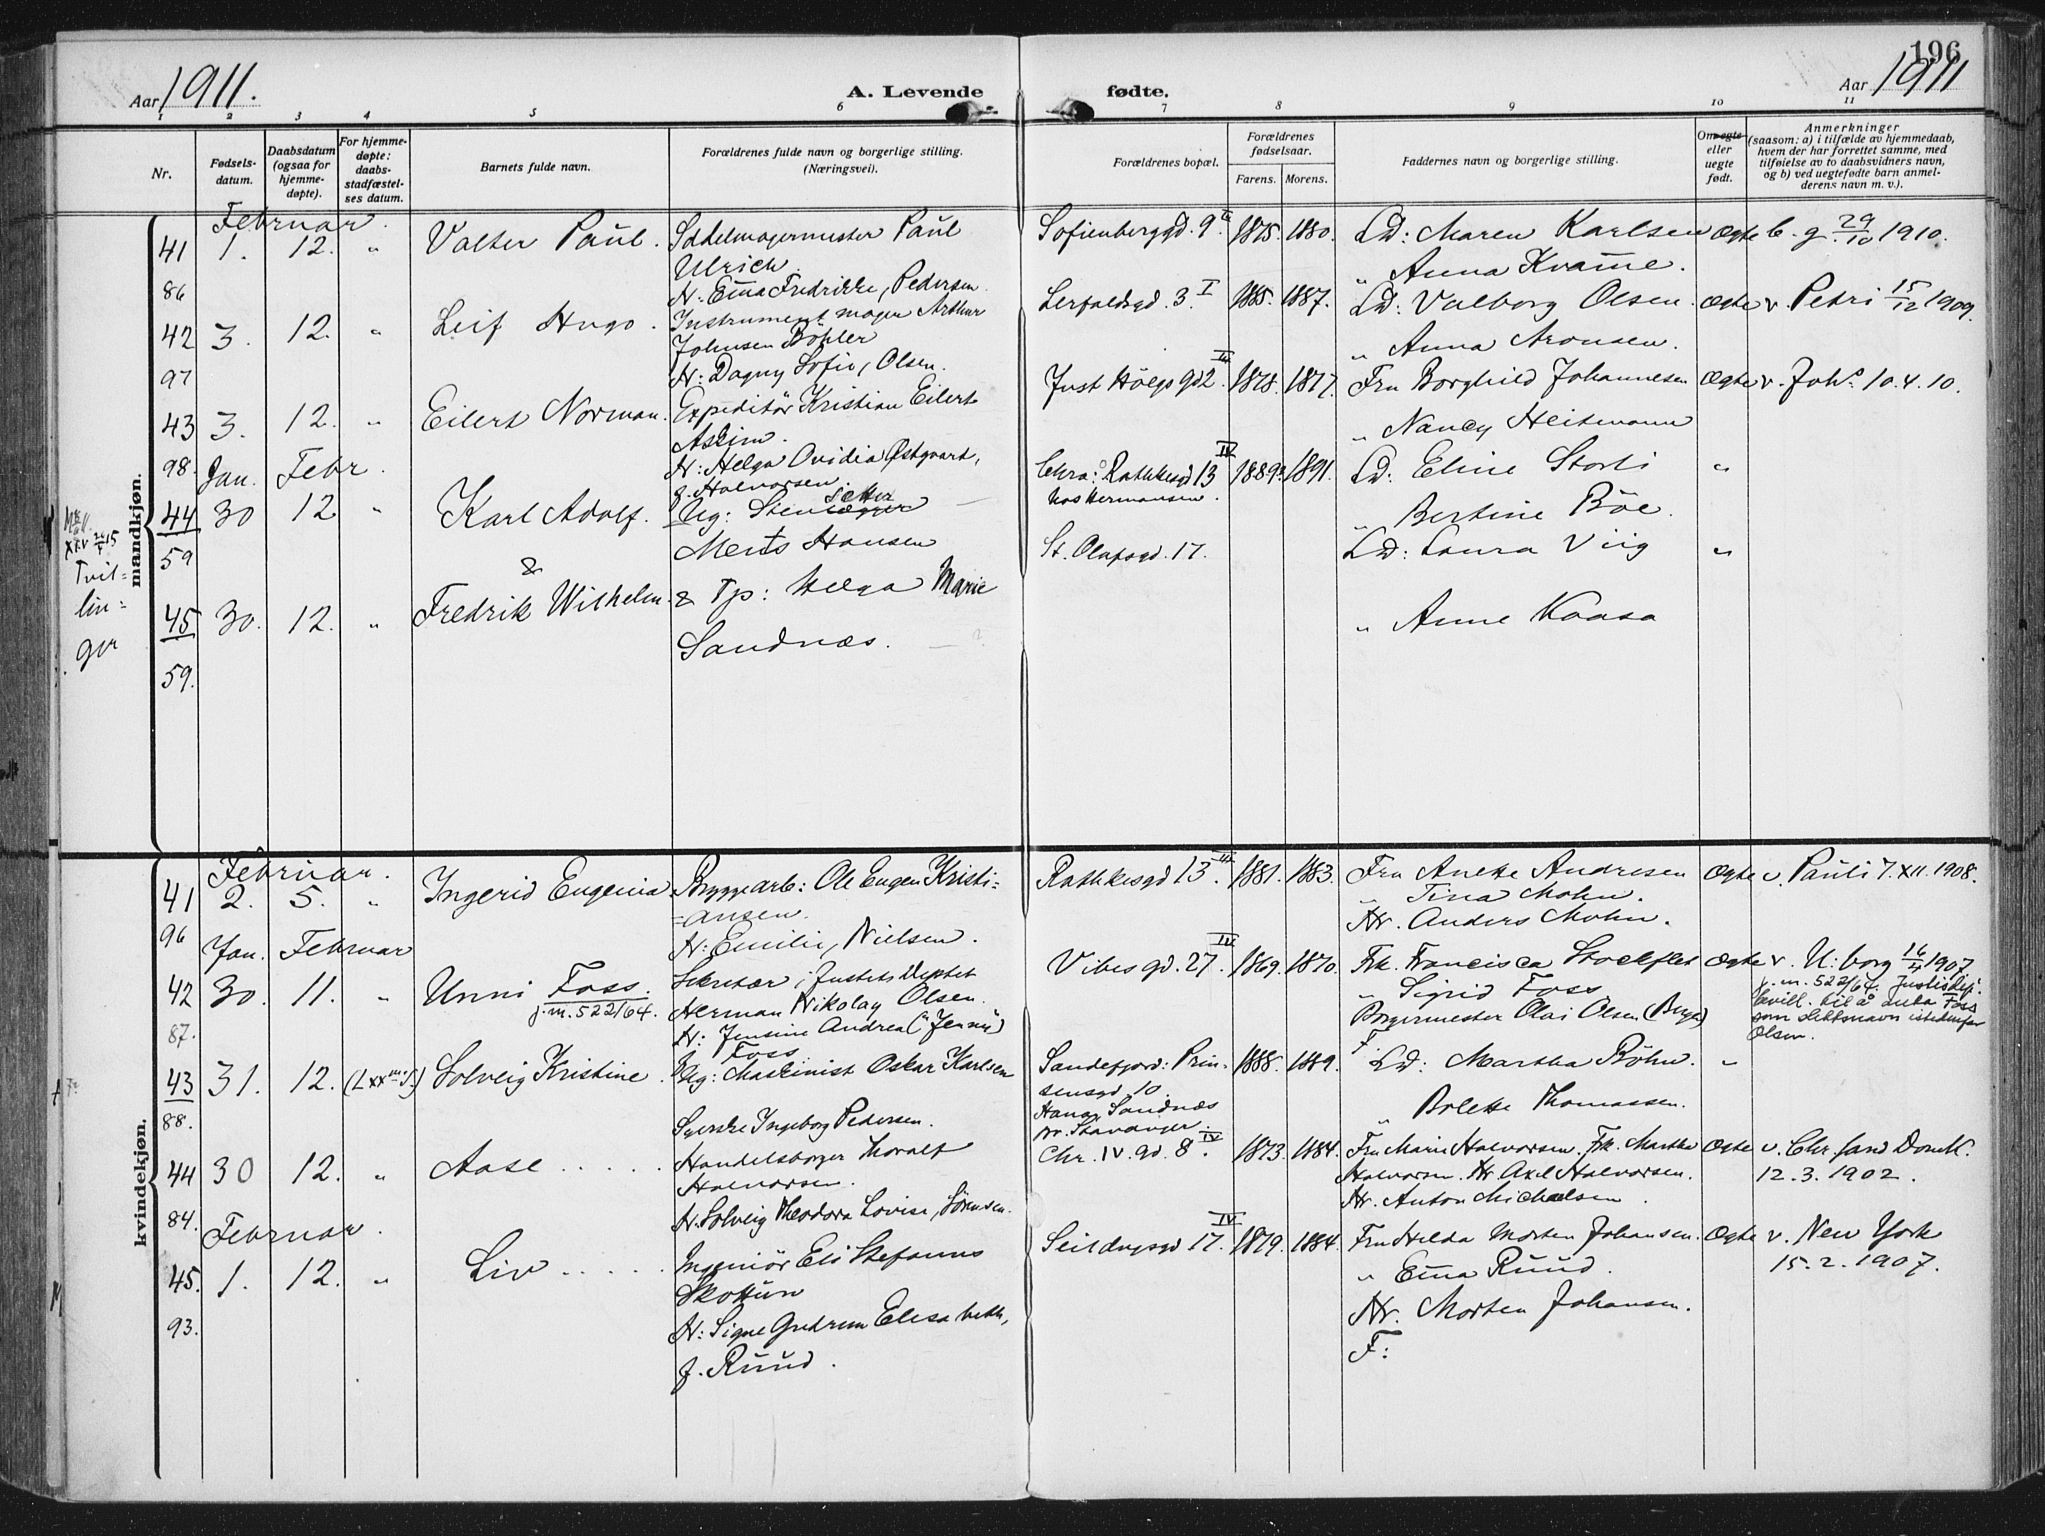 196
Aar 1911.
A. Levende
fødte.
Aar 1911
1 2 3 4 5 6 7 8 9 10 11
Nr.
Fødsels-
datum.
Daabsdatum
(ogsaa for
hjemme-
døpte).
For hjemme-
døpte:
daabs-
stadfæstel-
ses datum.
Barnets fulde navn.
Forældrenes fulde navn og borgerlige stilling.
(Næringsvei).
Forældrenes bopæl.
Forældrenes
fødselsaar.
Farens. Morens.
Faddernes navn og borgerlige stilling.
Om egte
eller
uegte
født.
Anmerkninger
(saasom: a) i tilfælde av hjemmedaab,
hvem der har forrettet samme, med
tilføielse av to daabsvidners navn,
og b) ved uegtefødte barn anmel-
derens navn m. v.).
mandkjøn.
Februar.
41 1. 12. " Valter Paul. Sadelmagermester Paul
Ulrich
H: Emma Fredrikke, Pedersen.
86
Sofienberggd. 9 1875. 1880. Ld: Maren Karlsen Ægte b. g. 29/10 1910.
" Anna Kramme.
42 3. 12. " Leif Hugo. Instrumentmager Arthur
Johnsen Böhler
H: Dagny Sofie, Olsen.
97
Lerfaldsgd. 3 I 1885. 1887. Ld: Valborg Olsen. Ægte v. Petri 15/12 1909.
" Anna Aronsen.
43 3. 12. " Eilert Norman. Expeditör Kristian Eilert
Askim.
H: Helga Ovidia Østgaard,
f. Halvorsen.
98.
Just Høegs gd 2 III 1878. 1877. Fru Borghild Johannesen Ægte v. Joh. 10.4.10.
" Nancy Heitmann
Jan. Febr.
44 30 12 " Karl Adolf. Ug: Stensætter
Merts Hansen
59
Chra: Rathkesgd 13 IV
hos Hermansen.
1889. 1891. Ld: Eline Storli "
" Bertine Böe.
&
45 30. 12. " Fredrik Wilhelm. & Tp: Helga Marie
Sandnæs.
59.
St. Olafsgd. 17. Ld: Laura Viig "
" Anne Kaasa
Tvil-
lin-
ger
kvindekjøn.
Februar.
41 2. 5. " Ingerid Eugenia Bryggearb: Ole Eugen Kristi-
ansen.
H: Emilie, Nielsen.
96
Rathkesgd 13. III 1881. 1883. Fru Anette Andresen Ægte v. Pauli 7.XII.1908.
" Tina Mohn.
Hr. Anders Mohn.
Jan. Februar
42 30. 11. " Unni Foss.
j.m. 522/64.
Sekretær i Justits Deptet
Herman Nikolay Olsen.
H: Jensine Andrea ("Jenny")
Foss.
87.
Vibes gd. 27. IV 1869. 1870. Frk. Francisca Stockflet Ægte v. U: borg 16/4 1907
" Sigrid Foss
Borgermester Olai Olsen (Berge)
F.
j.m. 522/64. Justisdep.
bevill. til å anta Foss
som slektsnavn istedenfor
Olsen.
43 31. 12. Solveig Kristine. Ug: Maskinist Oskar Karlsen
Syerske Ingeborg Pedersen.
88.
Sandefjord: Prin-
sensgd 10
Hana, Sandnæs
pr. Stavanger.
1888. 1889. Ld: Martha Böhn. "
" Bolette Thomassen.
44 30 12. " Aase ..... Handelsborger Thoralf
Halvorsen.
H. Solveig Theodora Lovise, Sörensen.
84.
Chr. IV. gd. 8. IV 1873. 1884. Fru Marie Halvorsen. Frk. Martha
Halvorsen. Hr. Axel Halvorsen.
Hr. Anton Michaelsen.
Ægte v. Chr.sand Domk.
12.3.1902.
Februar.
45. 1. 12. " Liv ..... Ingeniör Eli Stefanus
Skottun
H: Signe Gudrun Elisabeth,
f. Ruud.
93.
Seildugsgd 17. IV 1879. 1884. Fru Hilda Morten Johansen. Ægte v. New York
15.2.1907.
" Emma Ruud.
Hr. Morten Johansen.
F: